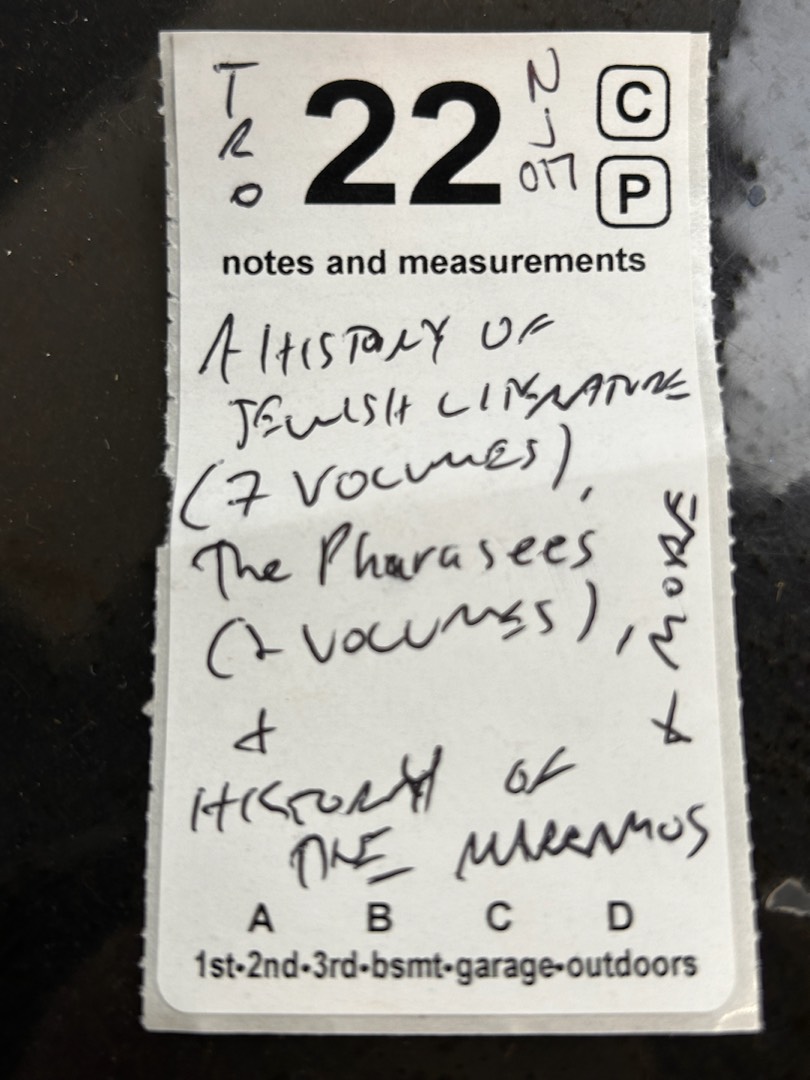 TRO 22 NJ 017 C
P
notes and measurements
A HISTORY OF
JEWISH LITERATURE
(7 VOLUMES),
The Pharasees
(2 VOLUMES),
+ MORE
+
HISTORY OF
THE MARRANOS
A B C D
1st•2nd•3rd•bsmt•garage•outdoors